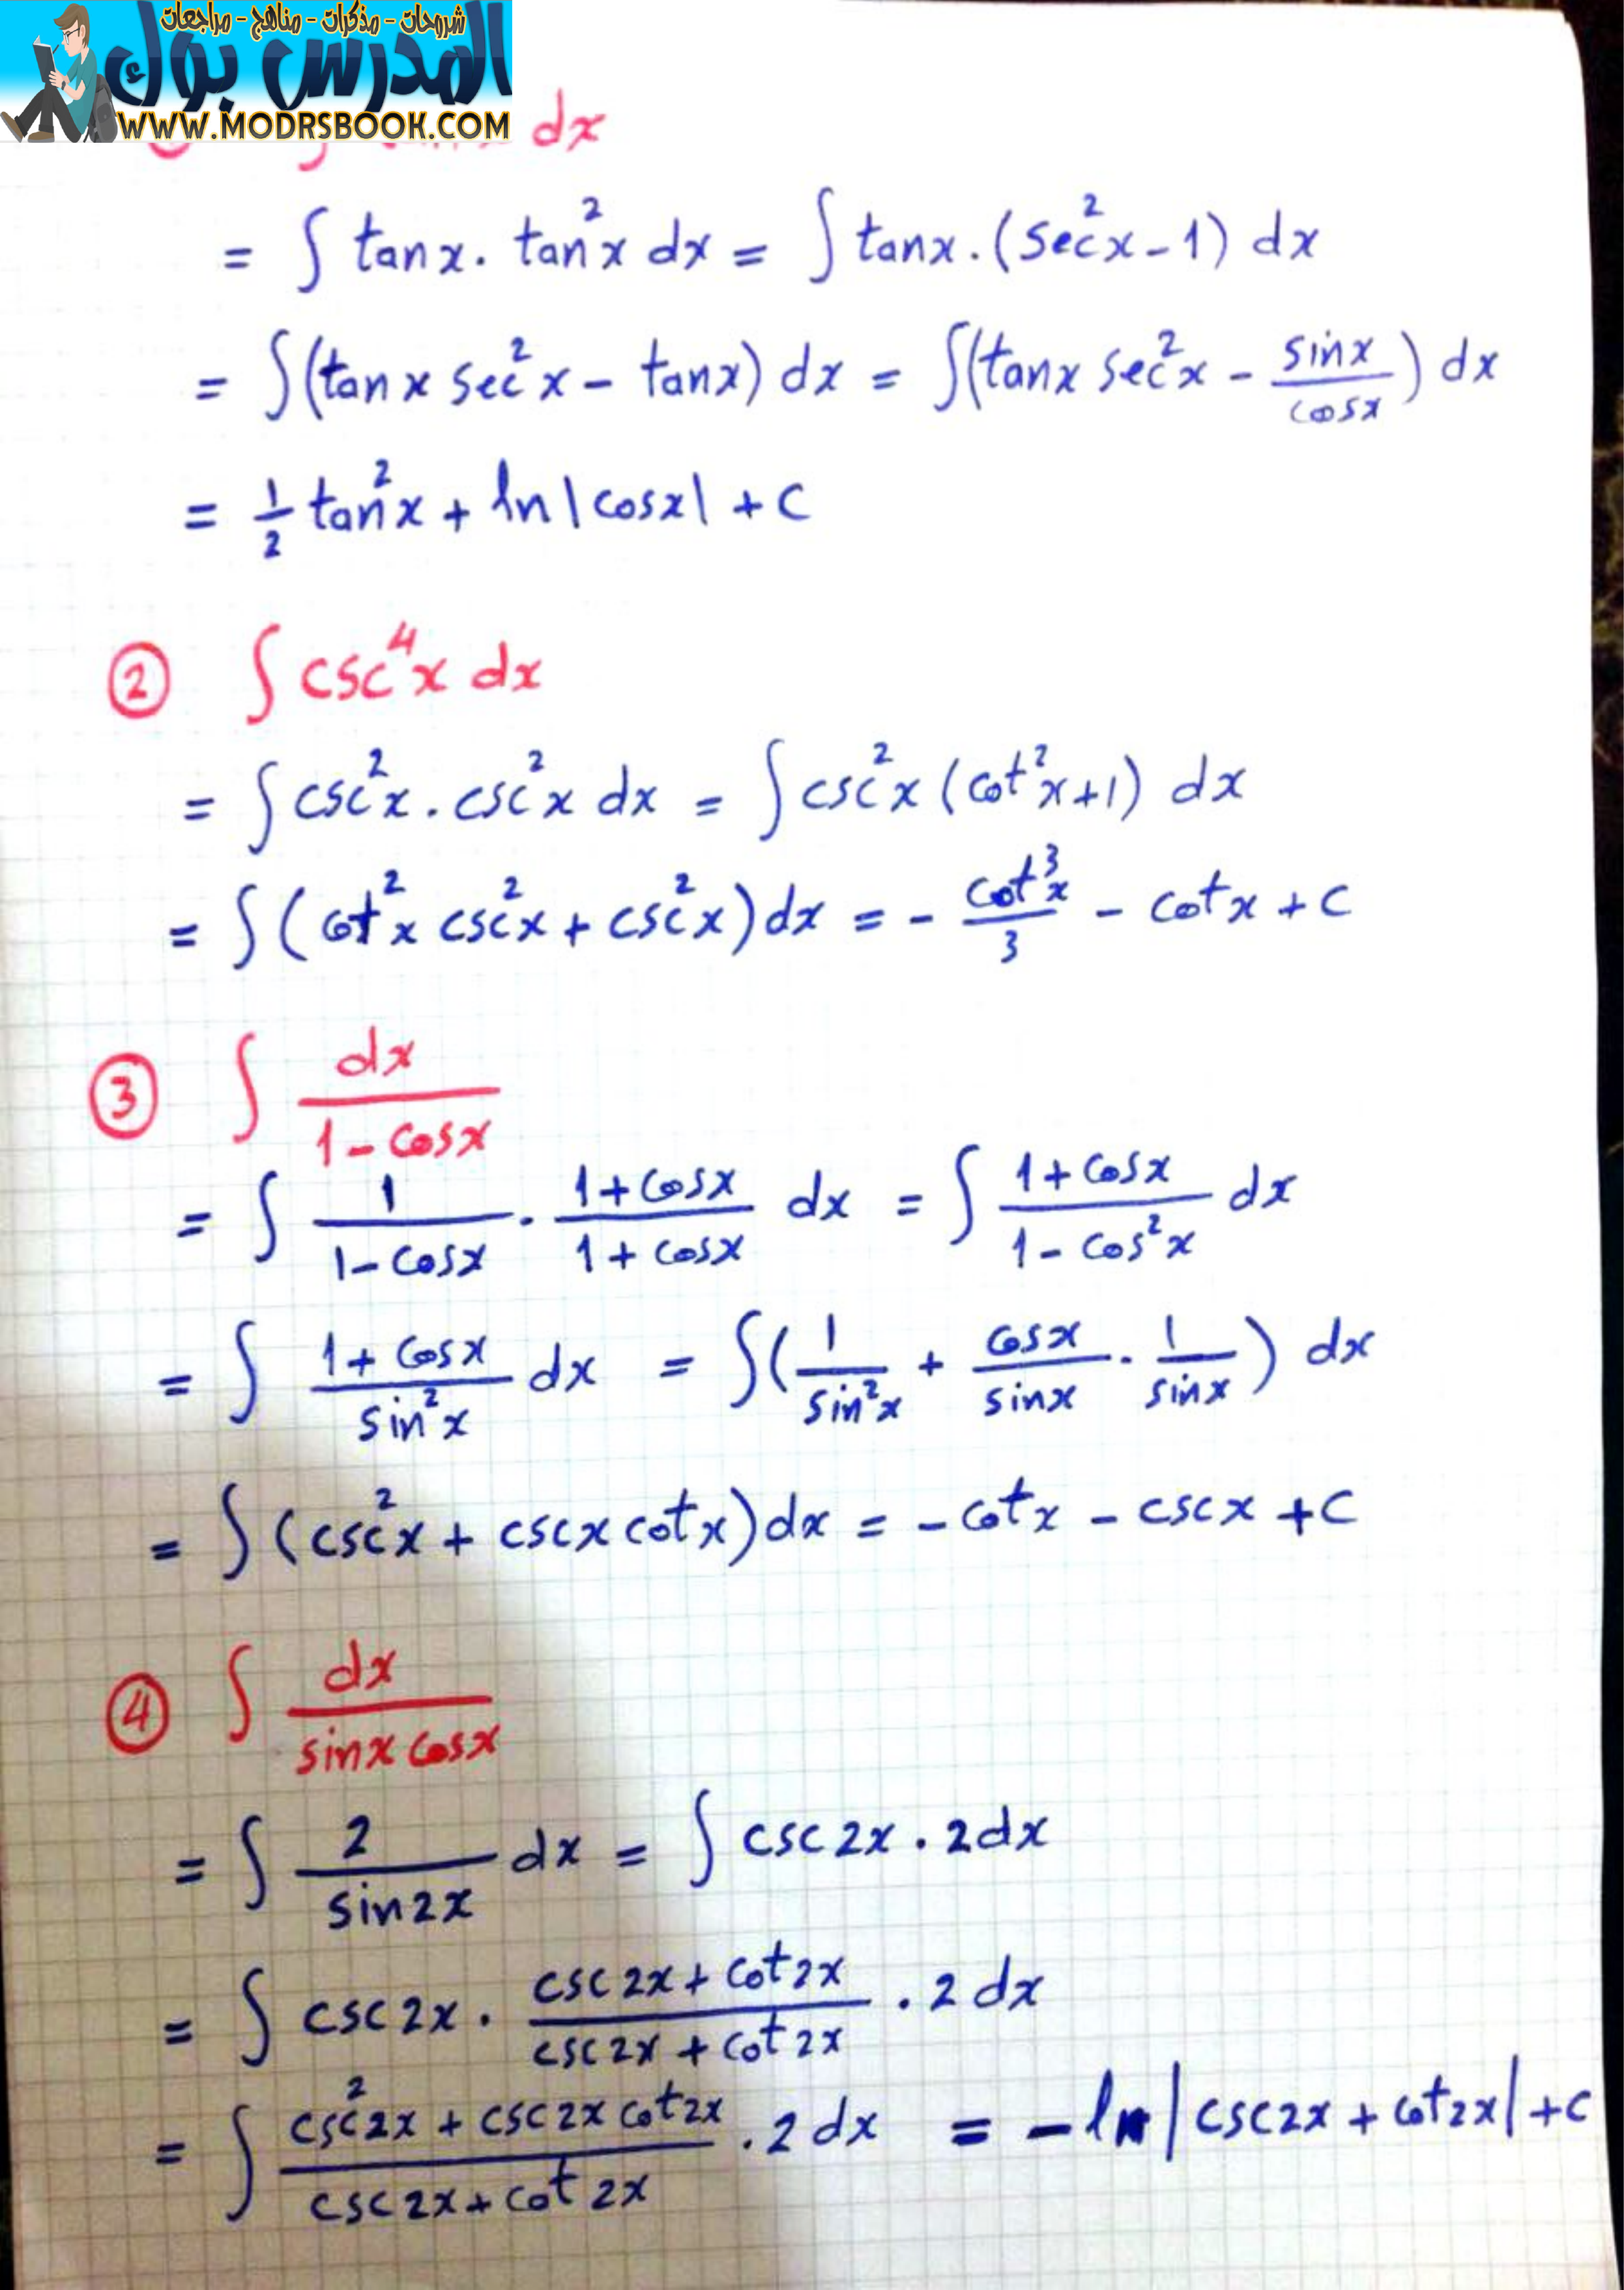 شروحات - مذكرات - مناهج - مراجعات
المدرس بوك
WWW.MODRSBOOK.COM
dx
= ∫ tanx . tan²x dx = ∫ tanx . (sec²x - 1) dx
= ∫(tanx sec²x - tanx) dx = ∫(tanx sec²x - sinx/cosx) dx
= 1/2 tan²x + ln|cosx| + c
② ∫ csc⁴x dx
= ∫ csc²x . csc²x dx = ∫ csc²x (cot²x+1) dx
= ∫ (cot²x csc²x + csc²x) dx = - cot³x/3 - cotx + c
③ ∫ dx/(1 - cosx)
= ∫ 1/(1-cosx) . (1+cosx)/(1+cosx) dx = ∫ (1+cosx)/(1-cos²x) dx
= ∫ (1+cosx)/sin²x dx = ∫(1/sin²x + cosx/sinx . 1/sinx) dx
= ∫ (csc²x + cscx cotx) dx = -cotx - cscx + c
④ ∫ dx/(sinx cosx)
= ∫ 2/sin2x dx = ∫ csc2x . 2dx
= ∫ csc2x . (csc2x + cot2x)/(csc2x + cot2x) . 2 dx
= ∫ (csc²2x + csc2x cot2x)/(csc2x + cot2x) . 2 dx = -ln|csc2x + cot2x| + c